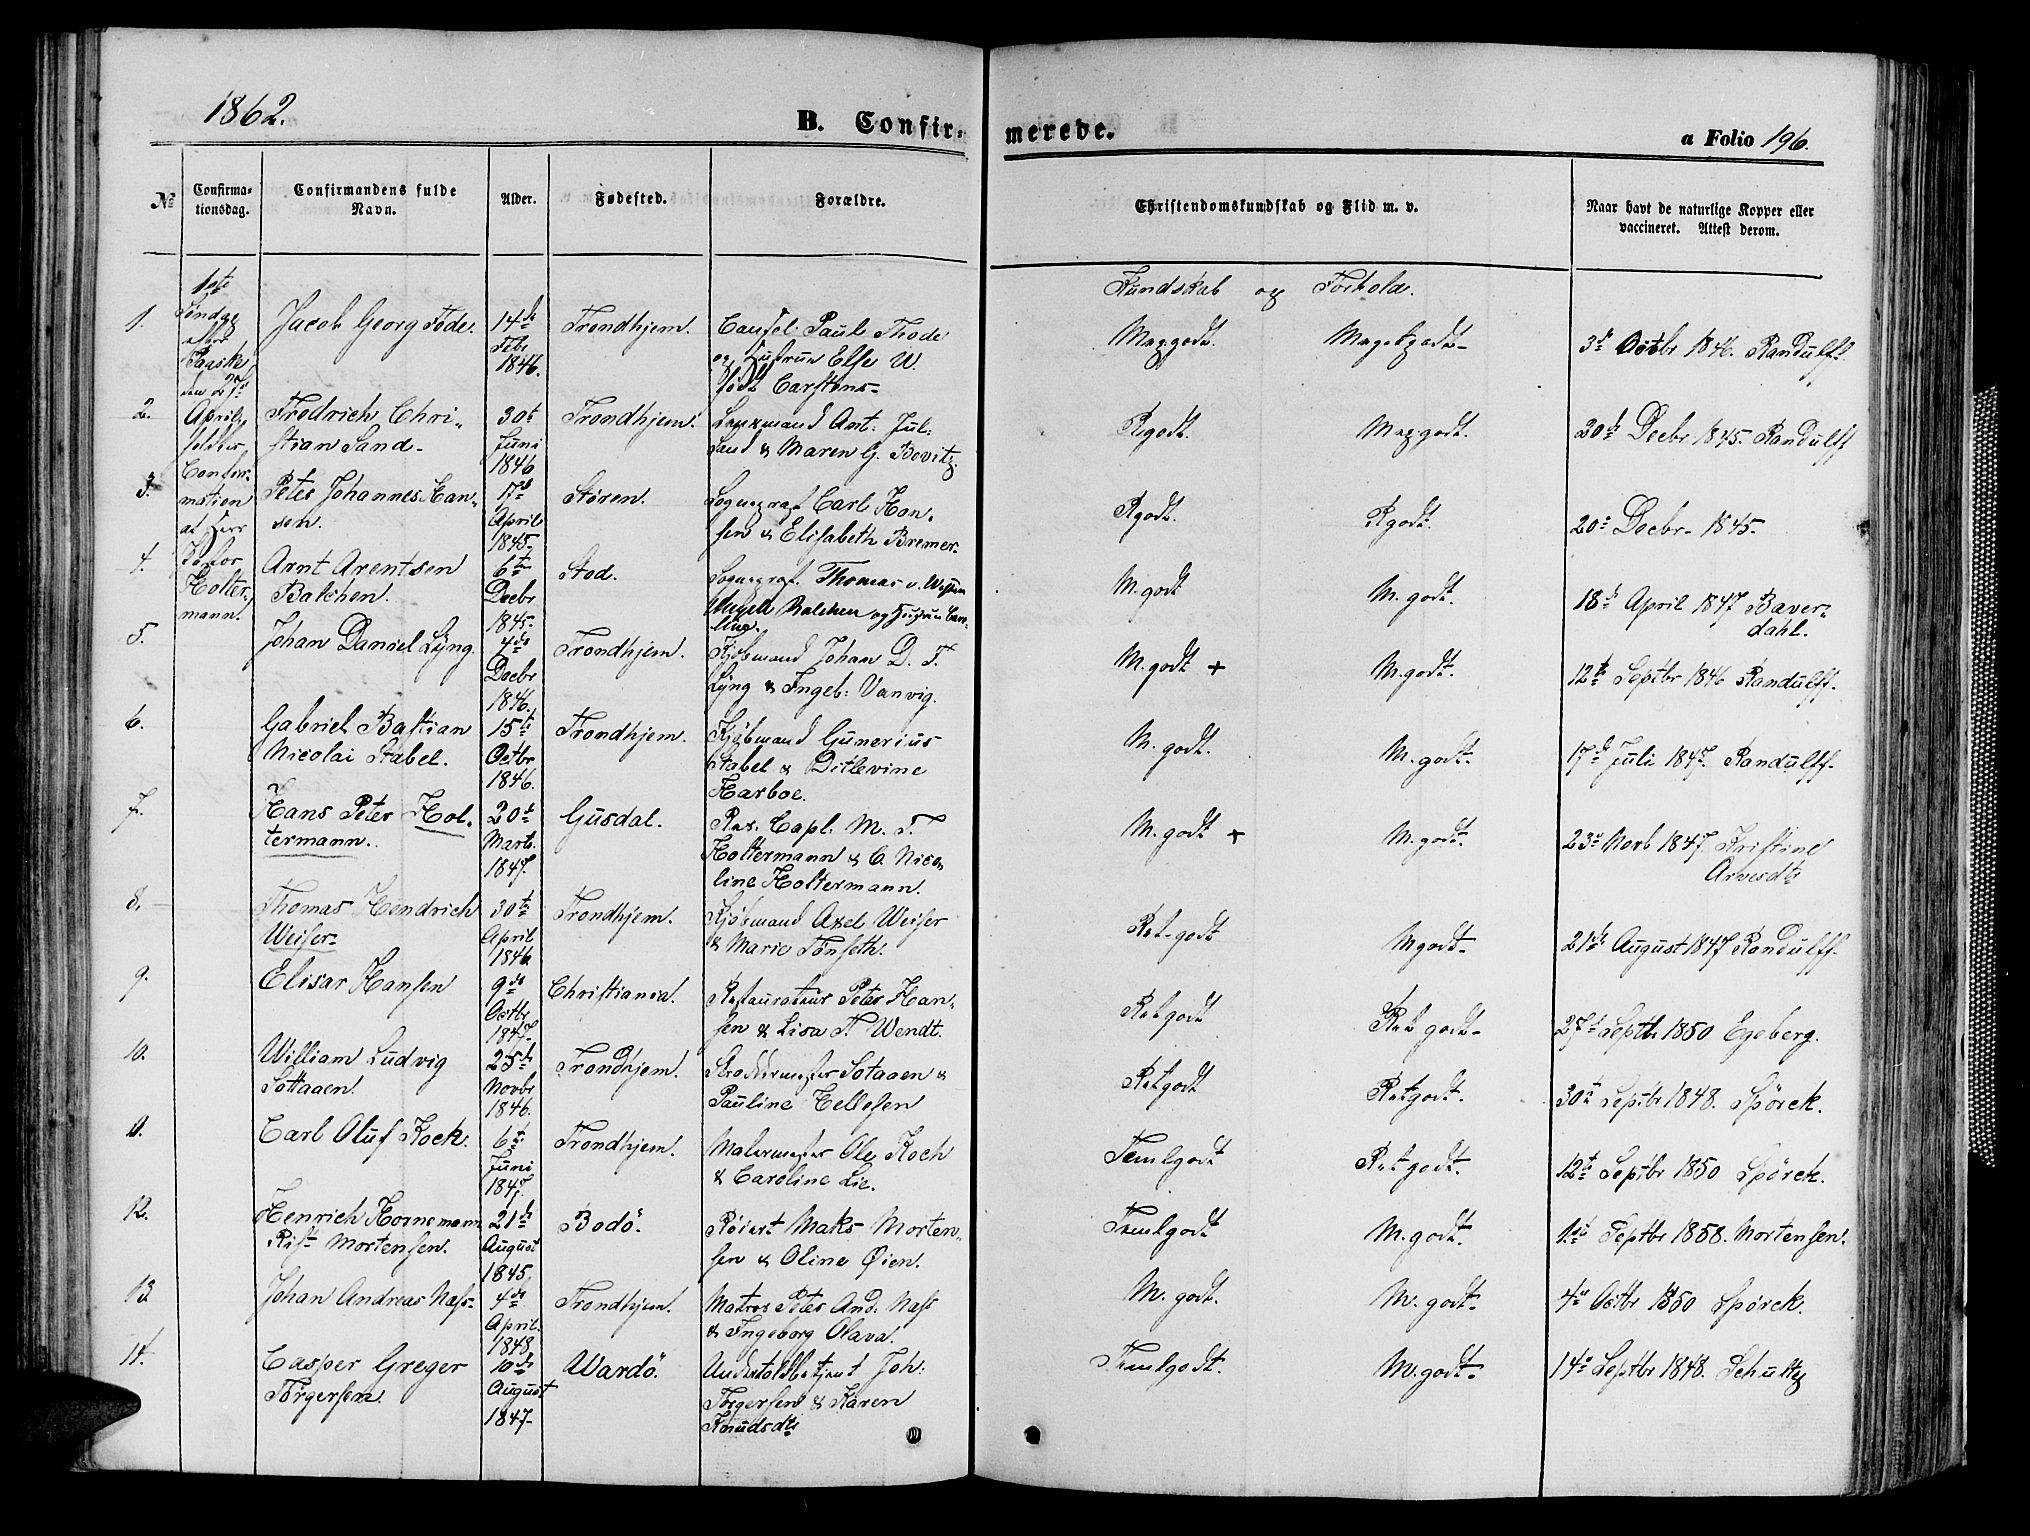 1862.
B. Confir-
merede.
a Folio 196.
№
Confirma-
tionsdag.
Confirmandens fulde
Navn.
Alder.
Fødested.
Forældre.
Christendomskundskab og Flid m. v.
Naar havt de naturlige Kopper eller
vaccineret. Attest derom.
Kundskab og Forhold.
1ste
Søndag
efter
Paaske
den 27de
April
holdtes
Confir-
mation
at Herr
Holter-
mann.
1. Jacob Georg Tode. 14de Febr 1846. Trondhjem. Consul Paul Thode
og Hustrue Else W.
født Carstens- Megodt. Megetgodt- 3de Octbr 1846. Randulff.
2. Fredrich Chri-
stian Sand- 30te Juni 1846 Trondhjem. Ant: Jul:
Sand & Maren G. Bovitz. Rgodt. Megodt. 20de Decbr 1845. Randulff
3. Peter Johannes Han-
sen. 17de April 1845- Støren. Sognepræst Carl Han-
sen & Elisabeth Bremer. Rgodt. Rgodt. 20de Decbr- 1845-
4. Arnt Arentsen
Balchen. 6te Decbr 1845- Stod. Sogneprst. Thomas v. Westen
Balchen og Hustrue
M. godt M. godt. 18de April 1847 Baver-
dahl.
5. Johan Daniel Lÿng 4de Decbr 1846. Trondhjem. Kjøbmand Johan D. T.
Lÿng & Ingeb: Vanvig. M. godt + M. godt. 12te Septbr 1846 Randulff.
6. Gabriel Bastian
Nicolai Stabel. 15te Octbr 1846. Trondhjem. Kjøbmand Gunerius
Stabel & Ditlevine
Harboe. M. godt. M. godt- 17de Juli 1847. Randulff-
7. Hans Peter Hol-
termann. 20de Marts 1847. Gusdal. Res. Capl. M. T.
Holtermann & C. Nico-
line Holtermann. M. godt + M. godt. 23de Novb 1847. Kristine
Arvesdtr
8. Thomas Hendrich
Weiser- 30te April 1846 Trondhjem. Kjøbmand Axel Weiser
& Marie Tønseth. Ret-godt Mgodt- 21de August 1847 Randulff.
9. Elisar Hansen 9de Octbr 1847. Christiania. Restaurateur Peter Han-
sen & Lisa T. Wendt. Retgodt Ret godt- 27de Septbr 1850 Egeberg.
10. William Ludvig
Sottaaen. 25de Novbr 1846. Trondhjem. Skræddermester Sotaaen &
Pauline Tellefsen Retgodt Retgodt. 30te Septbr 1848. Spörck.
11. Carl Oluf Kock. 6te Juni 1847. Trondhjem. Malermester Ole Koch
& Caroline Lie. Temlgodt Retgodt. 12te Septbr 1850 Spörck.
12. Henrich Hornemann
Rist Mortensen. 21de August 1845. Bodö. Maks Morten-
sen & Oline Øien. Temlgodt M. godt. 1ste Septbr 1858. Mortensen.
13. Johan Andreas Næss- 4de April 1848. Trondhjem. Matros Peter And. Næss
& Ingeborg Olava. M. godt. M. godt- 4de Octbr 1850 Spörck.
14. Casper Greger
Torgersen. 10de August 1847- Wardö. Undertoldbetjent Joh:
Torgersen & Karen
Knudsdtr Temlgodt. M. godt- 14de Septbr 1848. Schultz